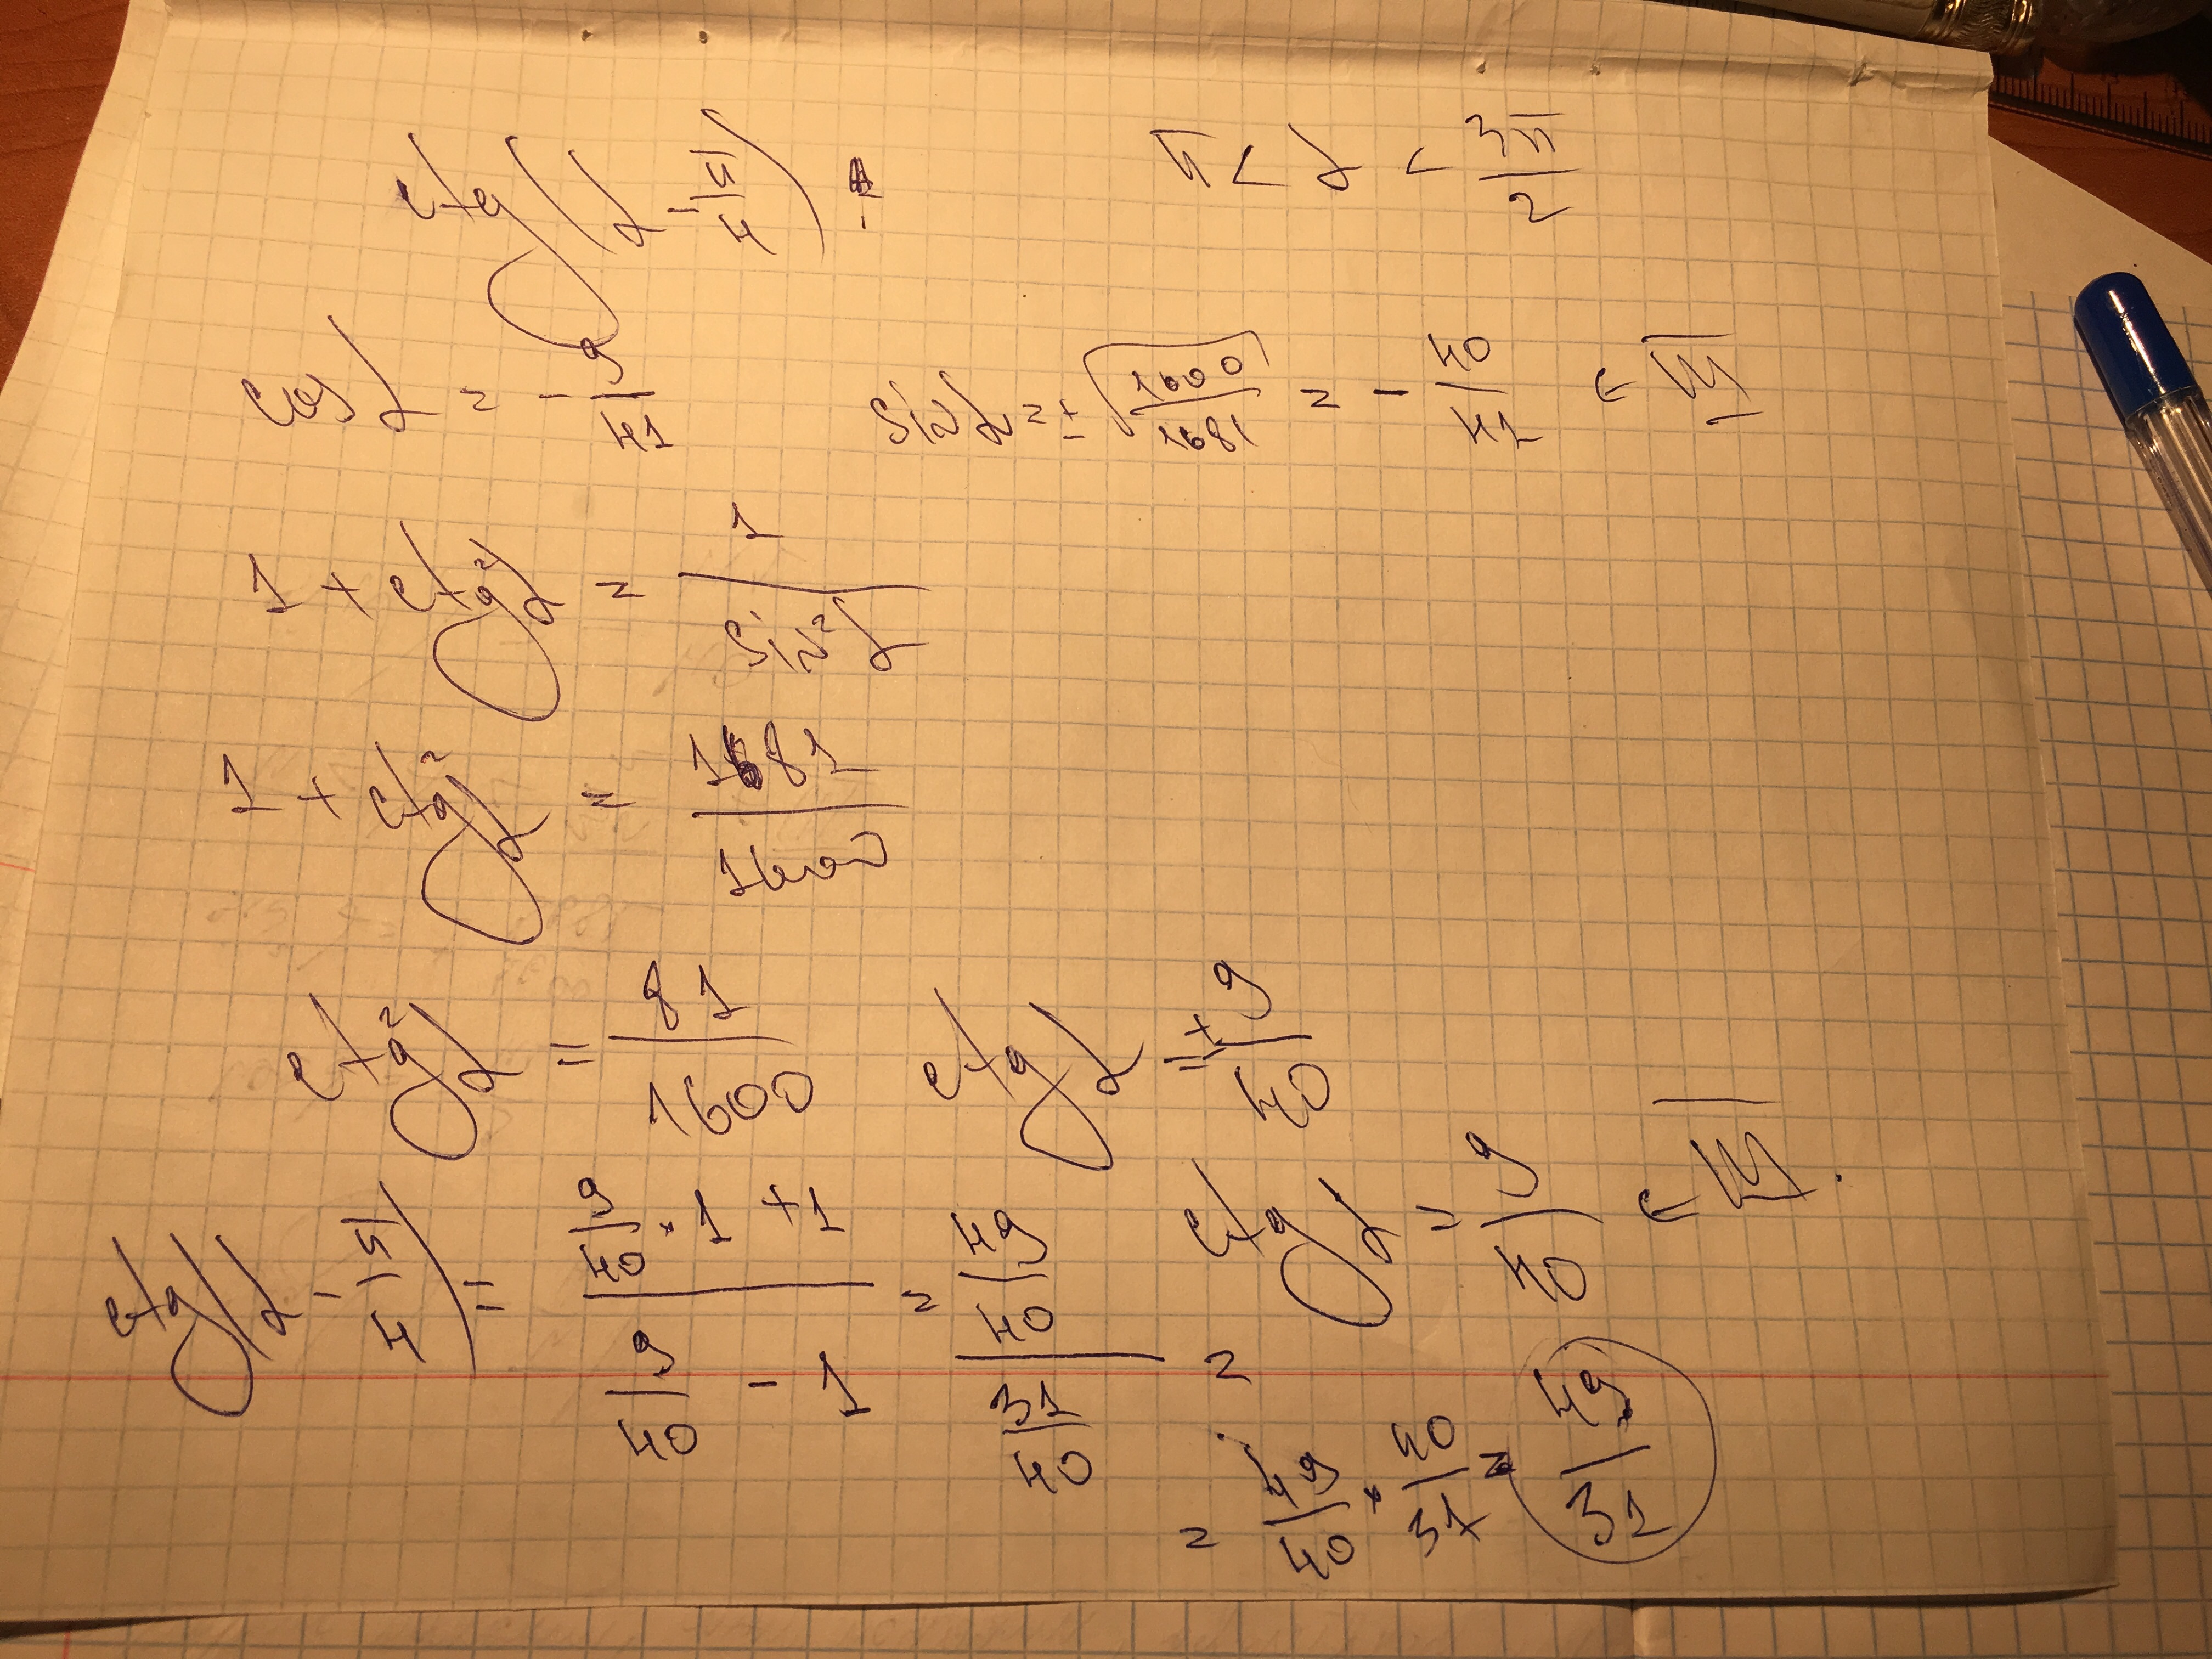 ctg(α - π/4) - ? π < α < 3π/2
cos α = - 9/41 sin α = ± √(1600/1681) = - 40/41 ∈ III
1 + ctg²α = 1/sin²α
1 + ctg²α = 1681/1600
ctg²α = 81/1600 ctg α = ± 9/40
ctg α = 9/40 ∈ III.
ctg(α - π/4) = (9/40 · 1 + 1)/(9/40 - 1) = (49/40)/(31/40) =
= 49/40 · 40/31 = 49/31